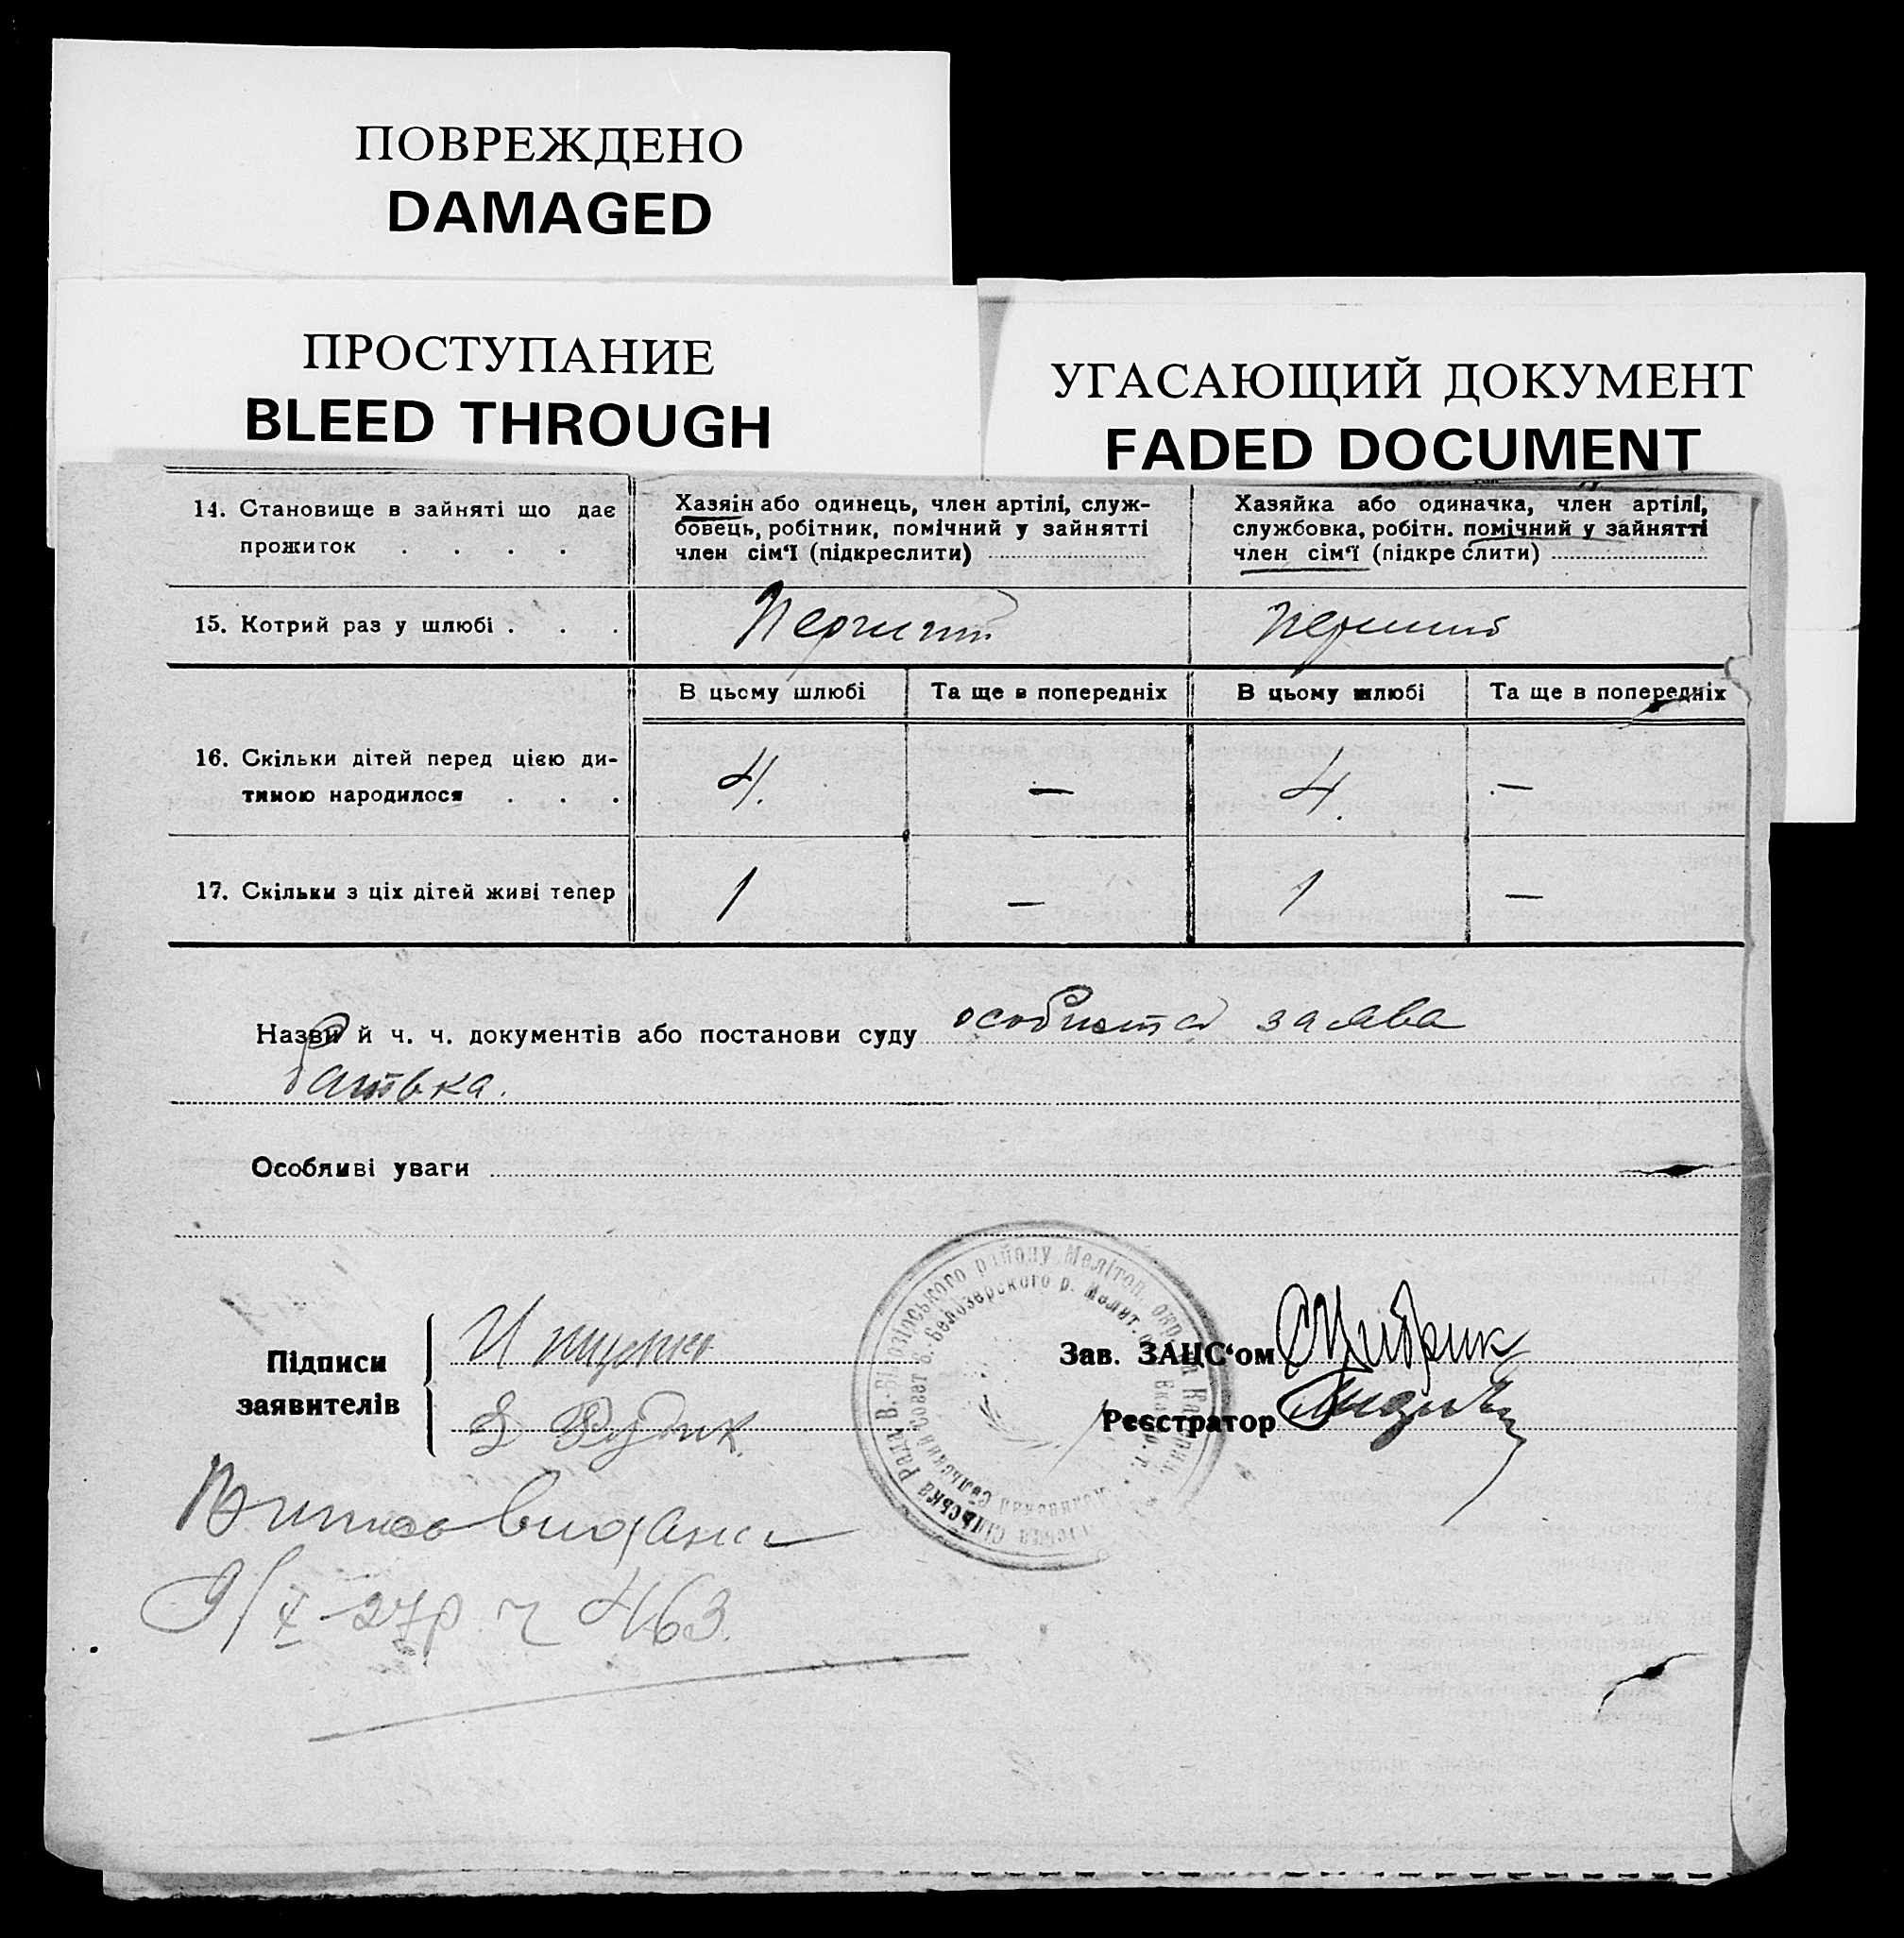 ПОВРЕЖДЕНО
DAMAGED
ПРОСТУПАНИЕ
BLEED THROUGH
УГАСАЮЩИЙ ДОКУМЕНТ
FADED DOCUMENT
14. Становище в зайняті що дає
прожиток . . . .
Хазяін або одинець, член артілі, служ-
бовець, робітник, помічний у зайнятті
член сім'ї (підкреслити)
Хазяйка або одиначка, член артілі,
службовка, робітн. помічний у зайнятті
член сім'ї (підкреслити)
15. Котрий раз у шлюбі . . .
Перший
перший
В цьому шлюбі
Та ще в попередніх
В цьому шлюбі
Та ще в попередніх
16. Скільки дітей перед цією ди-
тиною народилося . . .
4. — 4. —
17. Скільки з ціх дітей живі тепер
1 — 1 —
Назви й ч. ч. документів або постанови суду особиста заява
батька.
Особливі уваги
Підписи
заявителів
Рудик.
Зав. ЗАЦС'ом
Реєстратор
Сільська Рада В.-Білозірського району Мелітоп. окр.
Б.-Белозерского р. Мелит.
видана
9/X-27р. ч 463.